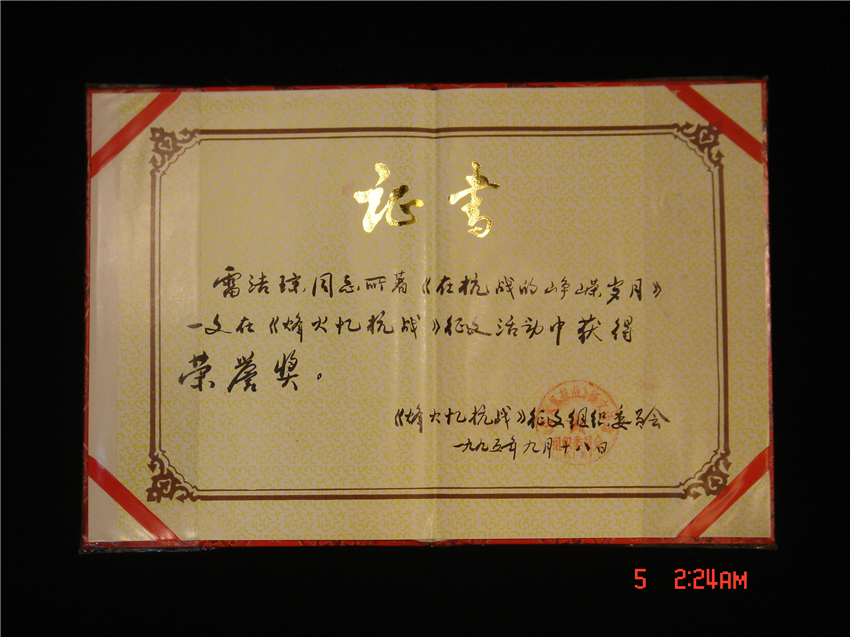 证书
雷洁琼同志所著《在抗战的峥嵘岁月》
一文在《烽火忆抗战》征文活动中获得
荣誉奖。
《烽火忆抗战》征文组织委员会
一九九五年九月十八日
5 2:24AM